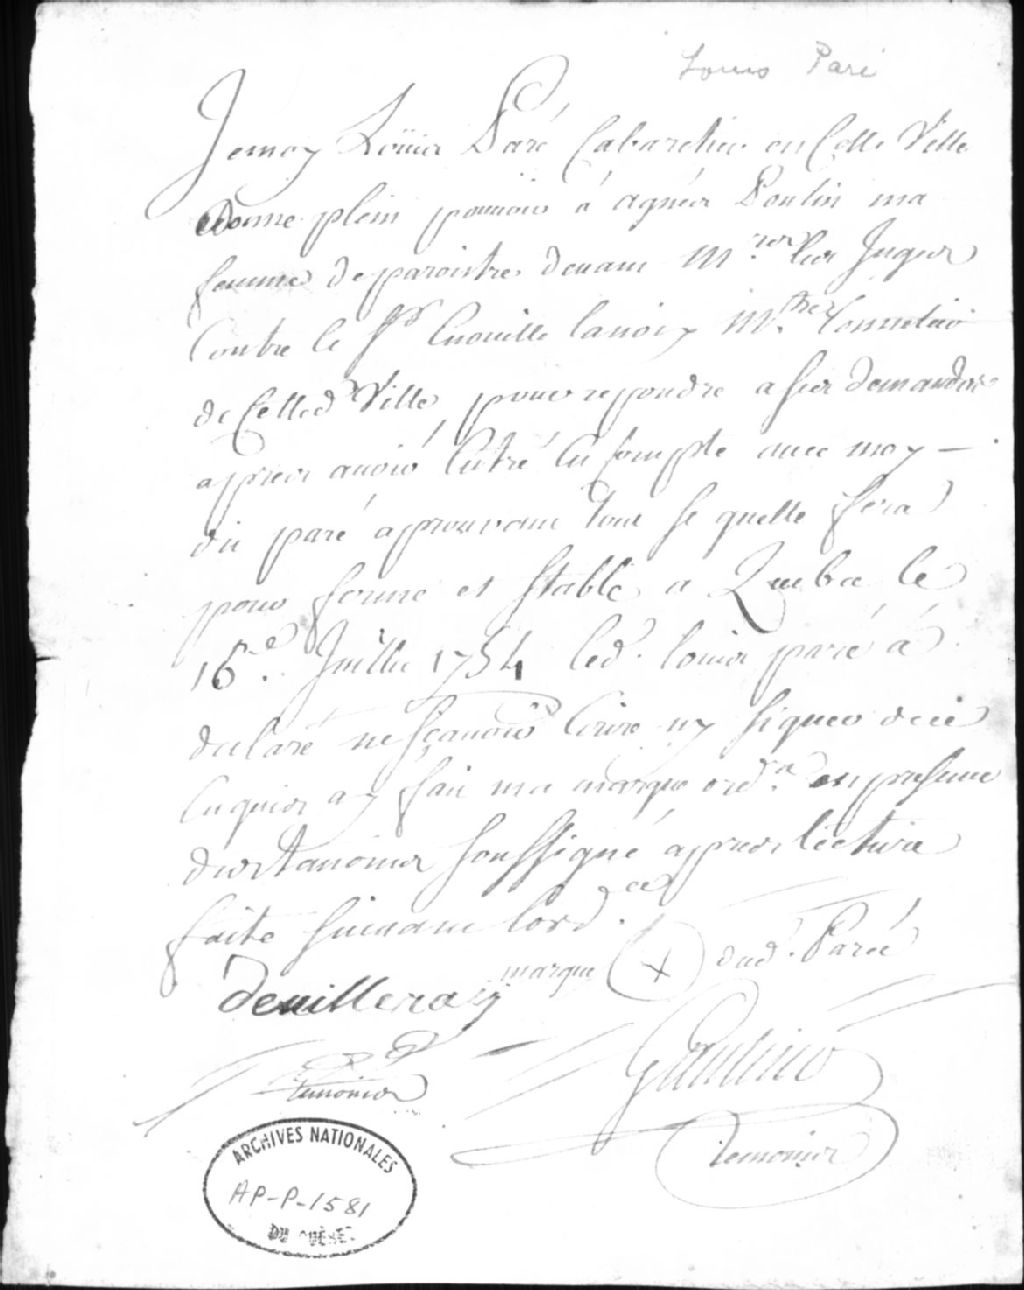 Louis Paré
Jemoy Loüis Paré Cabaretier en Cette Ville
donne plein pouuoir á agnés Poulin ma
femme de paroistre deuant M.rs les Juges
Contre le Sr lanoix
de Cette d Ville pour repondre a ses demandes
appres auoir Entré En Compte auec moy —
du paré aprouvant tout se quelle fera
pour ferme et stable a Quebec le
16.e Juillet 1754 led. louis paré á
declaré ne sçauoir Ecrire ny signer de ce
Enquis ay fait ma marque ordre. en presence
des temoins soussigné appres lecture
faite suiuant lord.ce
marque X dud. Paréé
deuilleray
temoins
Gaultier
temoins
ARCHIVES NATIONALES
AP-P-1581
DU QUÉBEC